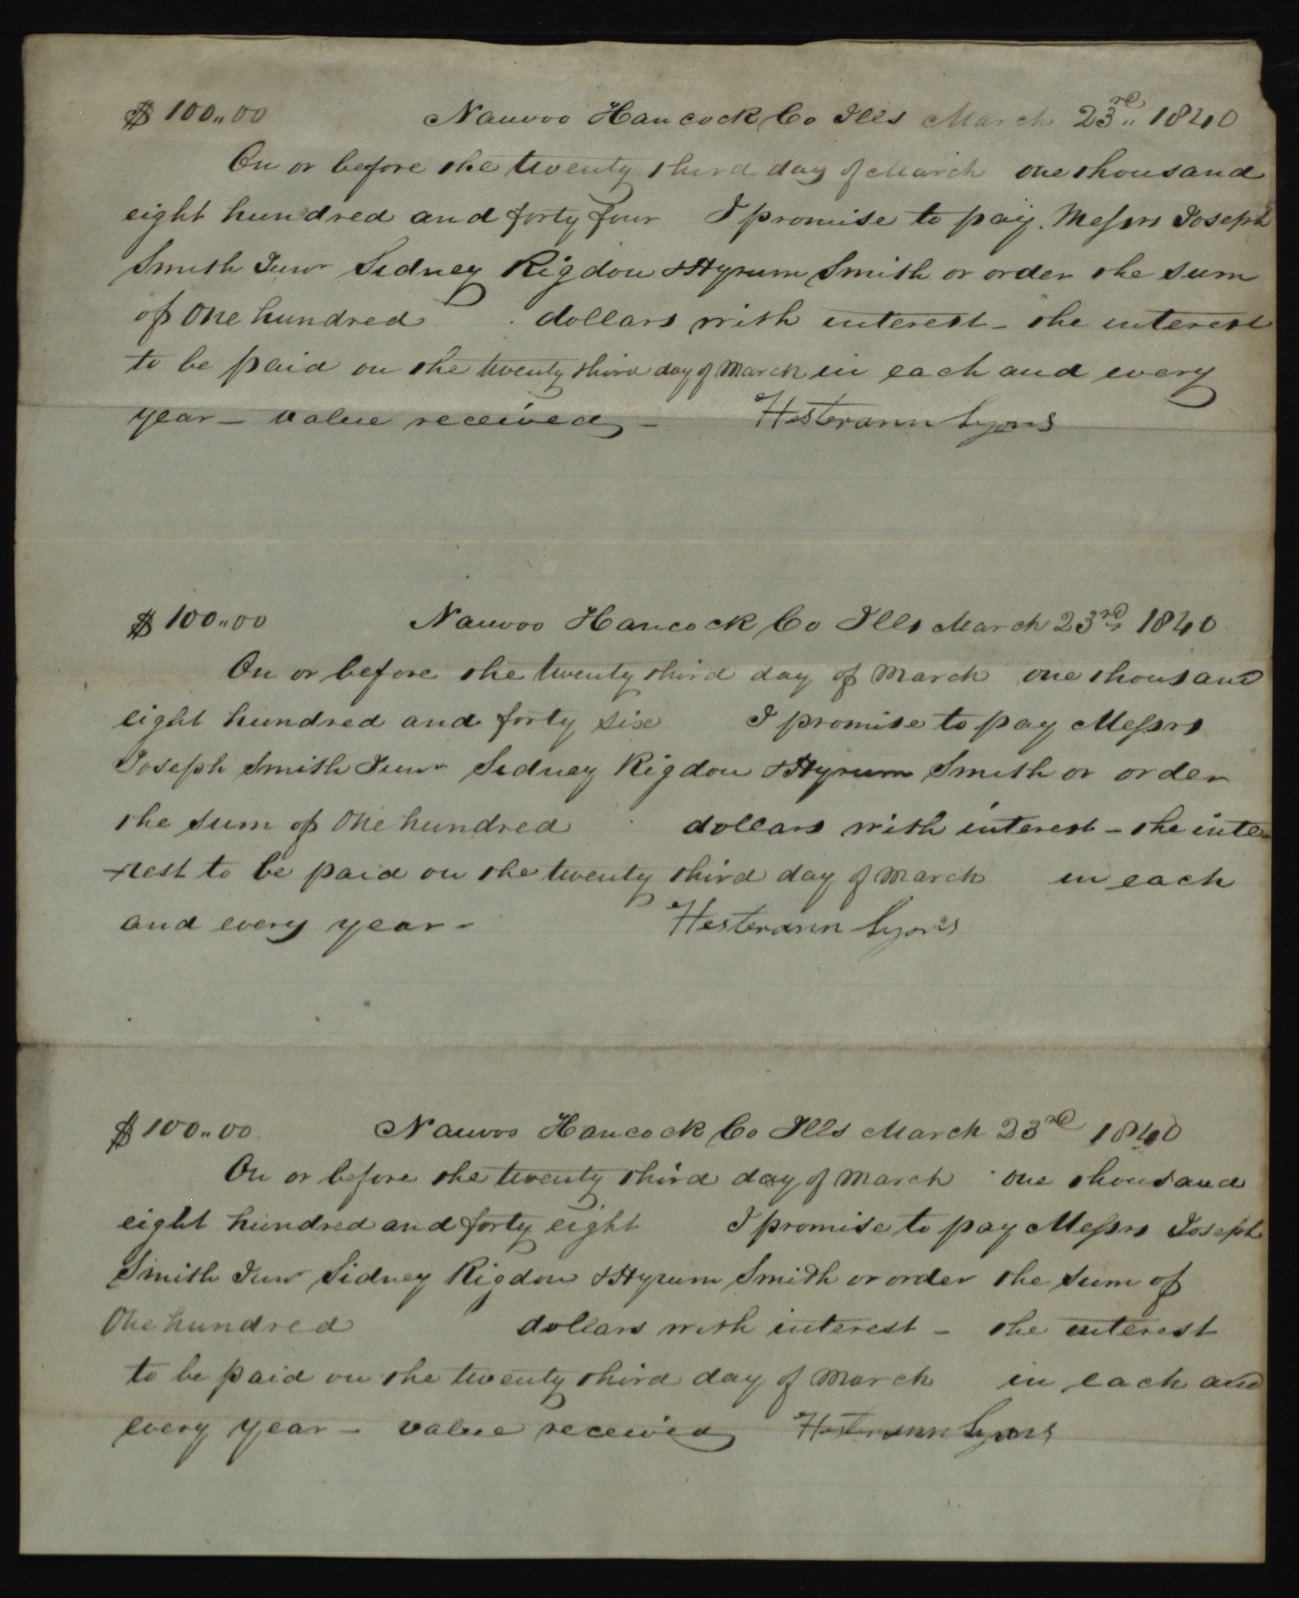 $100,,00 Nauvoo Hancock Co Ills March 23rd,, 1840
On or before the twenty third day of March one thousand
eight hundred and forty four I promise to pay Messrs Joseph
Smith Junr Sidney Rigdon & Hyrum Smith or order the sum
of One hundred dollars with interest - the interest
to be paid on the twenty third day of March in each and every
year - value received - Hesterann Lyons
$100,,00 Nauvoo Hancock Co Ills March 23rd, 1840
On or before the twenty third day of March one thousand
eight hundred and forty six I promise to pay Messrs
Joseph Smith Junr Sidney Rigdon & Hyrum Smith or order
the sum of One hundred dollars with interest - the inte-
-rest to be paid on the twenty third day of March in each
and every year - Hesterann Lyons
$100,,00 Nauvoo Hancock Co Ills March 23rd 1840
On or before the twenty third day of March one thousand
eight hundred and forty eight I promise to pay Messrs Joseph
Smith Junr Sidney Rigdon & Hyrum Smith or order the sum of
One hundred dollars with interest - the interest
to be paid on the twenty third day of March in each and
every year - value received Hesterann Lyons